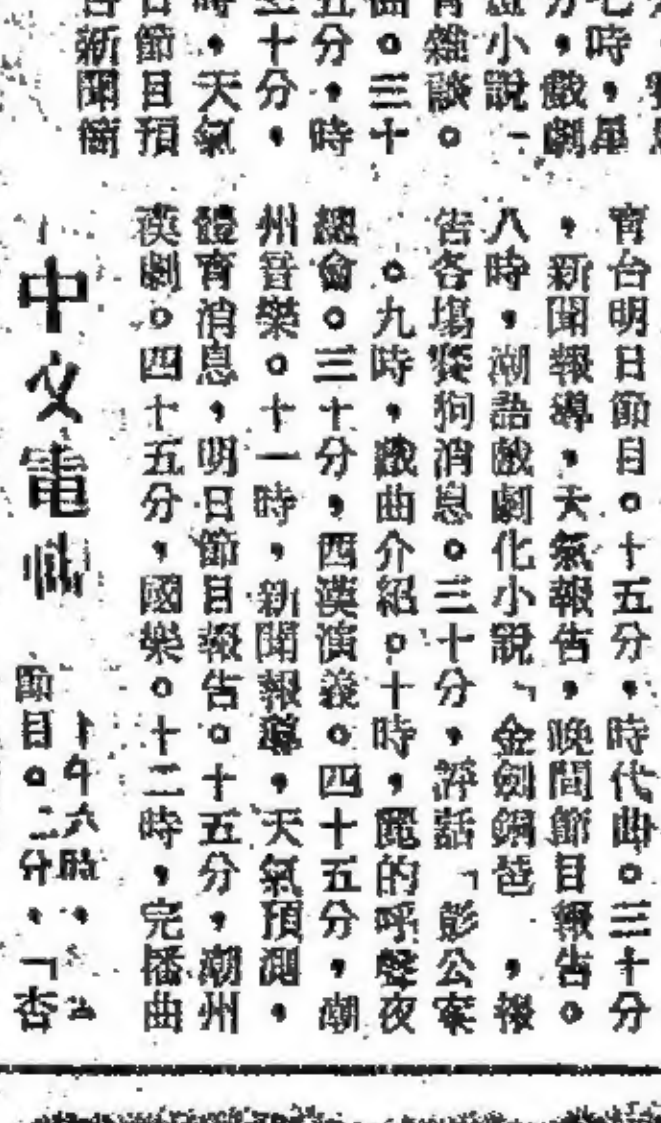 七時，星
分，戲劇
小說
育雜談。
曲。三十
五分，時
十分，
時，天氣
日節目預
告新聞簡
育台明日節目。十五分，時代曲。三十分
，新聞報導，天氣報告，晚間節目報告。
八時，潮語戲劇化小說「金劍銅琶，報
告各場賽狗消息。三十分，評話「彭公案
。九時，戲曲介紹。十時，麗的呼聲夜
總會。三十分，西漢演義。四十五分，潮
州音樂。十一時，新聞報導，天氣預測，
體育消息，明日節目報告。十五分，潮州
漢劇。四十五分，國樂。十二時，完播曲
中文電視
午六時，
節目。二分，「杏